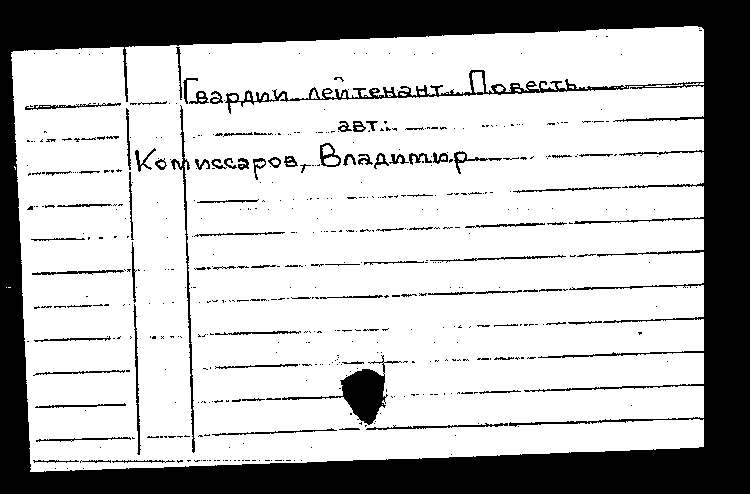 Гвардии лейтенант. Повесть
авт.:
Комиссаров, Владимир